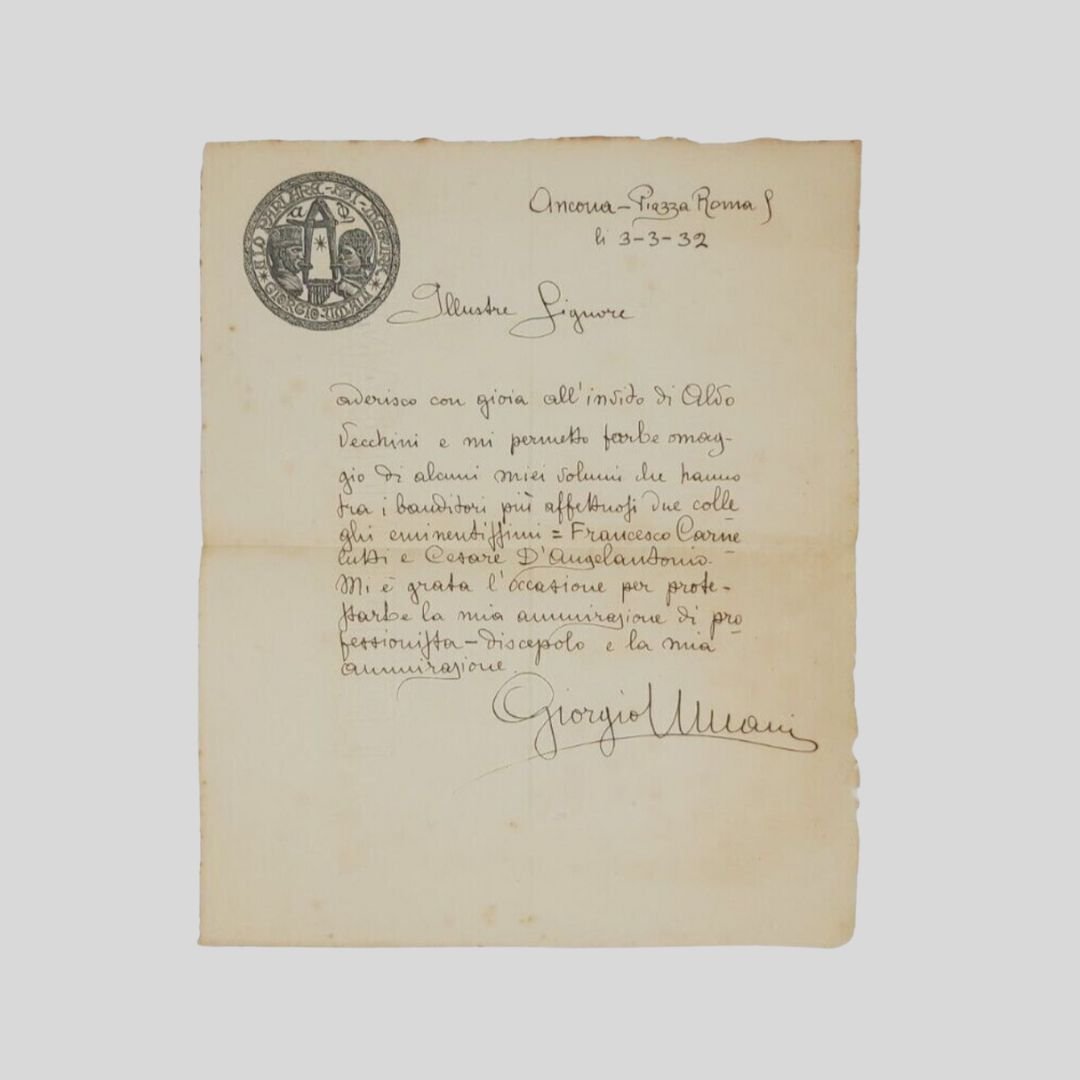 GIORGIO UMANI
Ancona - Piazza Roma
li 3-3-32
Illustre Signore
aderisco con gioia all'invito di Aldo
Vecchini e mi permetto farLe omag-
gio di alcuni miei volumi che hanno
tra i banditori più affettuosi due colle
ghi eminentissimi = Francesco Carne
lutti e Cesare D'Angelantonio.
Mi è grata l'occasione per prote-
starLe la mia ammirazione di pro
fessionista - discepolo e la mia
ammirazione.
Giorgio Umani